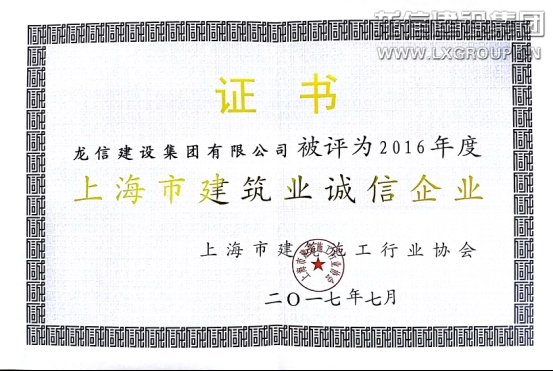 龙信建设集团
WWW.LXGROUP.CN
证书
龙信建设集团有限公司被评为2016年度
上海市建筑业诚信企业
上海市建筑施工行业协会
二〇一七年七月